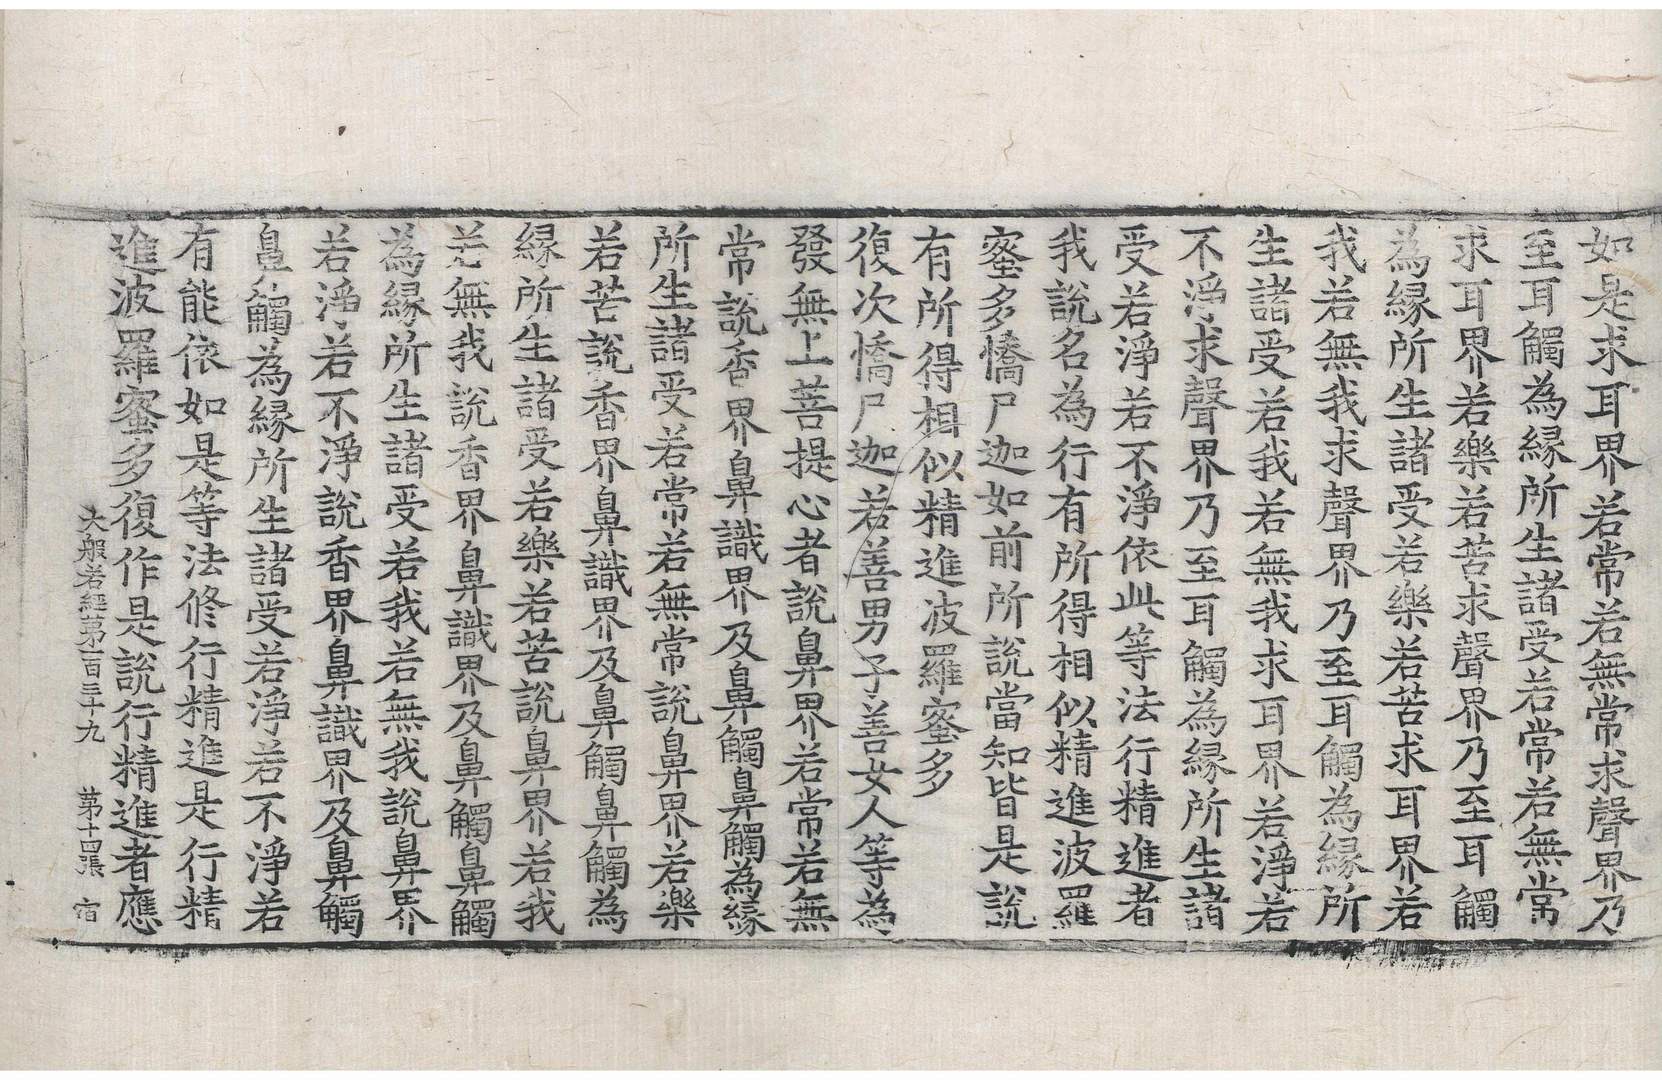 如是求耳界若常若無常求聲界乃
至耳觸為縁所生諸受若常若無常
求耳界若樂若苦求聲界乃至耳觸
為縁所生諸受若樂若苦求耳界若
我若無我求聲界乃至耳觸為縁所
生諸受若我若無我求耳界若淨若
不淨求聲界乃至耳觸為縁所生諸
受若淨若不淨依此等法行精進者
我說名為行有所得相似精進波羅
蜜多憍尸迦如前所說當知皆是說
有所得相似精進波羅蜜多
復次憍尸迦若善男子善女人等為
發無上菩提心者說鼻界若常若無
常說香界鼻識界及鼻觸鼻觸為縁
所生諸受若常若無常說鼻界若樂
若苦說香界鼻識界及鼻觸鼻觸為
縁所生諸受若樂若苦說鼻界若我
若無我說香界鼻識界及鼻觸鼻觸
為縁所生諸受若我若無我說鼻界
若淨若不淨說香界鼻識界及鼻觸
鼻觸為縁所生諸受若淨若不淨若
有能依如是等法修行精進是行精
進波羅蜜多復作是說行精進者應
大般若經第一百三十九 第十四張 宿